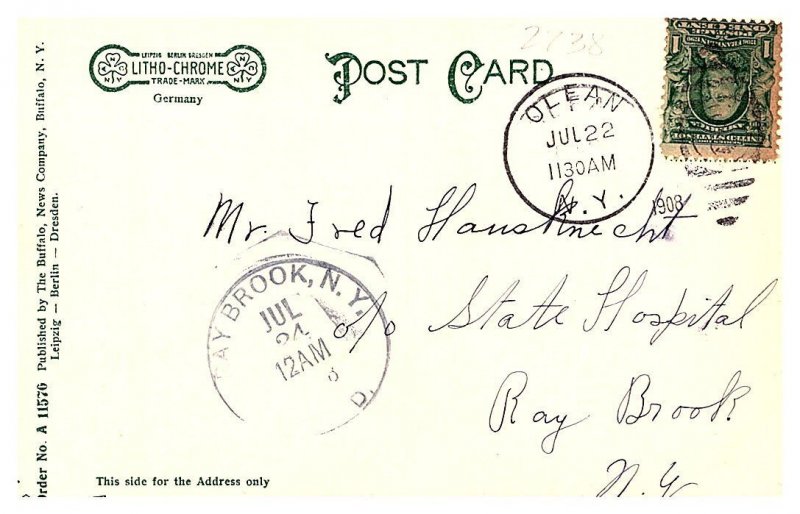 Order No. A 11576 Published by The Buffalo, News Company, Buffalo, N. Y.
Leipzig — Berlin — Dresden.
LEIPZIG BERLIN DRESDEN
LITHO-CHROME
TRADE-MARK
Germany
POST CARD
2738
OLEAN
JUL 22
1130AM
N.Y.
1908
1 1
Mr. Fred Hausknecht
RAY BROOK, N.Y.
JUL
24
12AM
8
D.
c/o State Hospital
Ray Brook
N.Y.
This side for the Address only